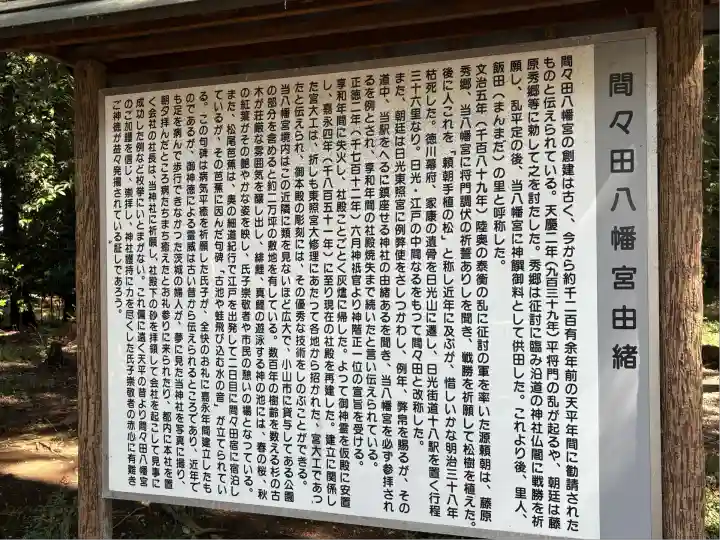 間々田八幡宮由緒
間々田八幡宮の創建は古く、今から約千二百有余年前の天平年間に勧請された
ものと伝えられている。天慶二年（九百三十九年）平将門の乱が起るや、朝廷は藤
原秀郷等に勅して之を討たした。秀郷は征討に臨み沿道の神社仏閣に戦勝を祈
願し、乱平定の後、当八幡宮に神饌御料として供田した。これより後、里人、
飯田（まんまだ）の里と呼称した。
文治五年（千百八十九年）陸奥の泰衡の乱に征討の軍を率いた源頼朝は、藤原
秀郷、当八幡宮に将門調伏の祈誓ありしを聞き、戦勝を祈願して松樹を植えた。
後に人これを、「頼朝手植の松」と称し近年に及ぶが、惜しいかな明治三十八年
枯死した。徳川幕府、家康の遺骨を日光山に遷し、日光街道十八駅を置く行程
三十六里なり、日光・江戸の中間なるをもつて間々田と改称した。
また、朝廷は日光東照宮に例弊使をさしつかわし、例年、弊帛を賜るが、その
道中、当駅をへるに鎮座せる神社の由緒あるを聞き、当八幡宮を必ず参拝され
るを例とされ、享和年間の社殿焼失まで続いたと言い伝えられている。
正徳二年（千七百十二年）六月神祇官より神階正一位の宣旨を受ける。
享和年間に失火し、社殿ことごとく灰燼に帰した。よつて御神霊を仮殿に安置
し、嘉永四年（千八百五十一年）に至り現在の社殿を再建した。建立に関係し
た宮大工は、折しも東照宮大修理にあたつて各地から招かれた、宮大工であつ
たと伝えられ、御本殿の彫刻には、その優秀な技術をしのぶことができる。
当八幡宮境内はこの近隣に類を見ないほど広大で、小山市に貸与してある公園
の部分を含めると約二万坪の敷地を有している。数百年の樹齢を数える杉の古
木が荘厳な雰囲気を醸し出し、緋鯉、真鯉の遊泳する神の池には、春の桜、秋
の紅葉がその艶やかな姿を映し、氏子崇敬者や市民の憩いの場となっている。
また、松尾芭蕉は、奥の細道紀行で江戸を出発して二日目に間々田宿に宿泊し
ているが、その芭蕉に因んだ句碑「古池や蛙飛び込む水の音」が立てられてい
る。この句碑は病気平癒を祈願した氏子が、全快のお礼に嘉永年間建立したも
のであるが、御神徳による霊威は古い昔から伝えられるところであり、近年で
も足を病んで歩行できなかつた茨城の婦人が、夢に見た当神社を写真に撮り、
朝夕拝んだところ病たちまち癒えたとお礼参りに来られたり、都内に本社を置
く会社の社長は、当神社に祈願し、社殿下の砂を拝領して会社を起こして見事に
成功した例など枚挙にいとまがない。これ偏に遠く天平の昔より間々田八幡宮
のご加護を信じ、崇拝し、神社護持に力を尽くした氏子崇敬者の赤心に有難き
ご神徳が益々発揚されている証しであろう。